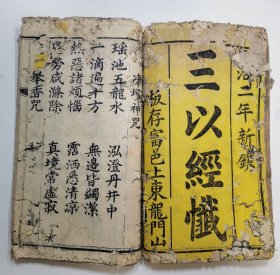 治二年新鐫
三以經懺
板存富邑上東龍門山
淨壇神咒
瑤池五龍水 泓澄丹井中
一滴遍十方 無邊皆蠲潔
熱惡諸煩惱 露洒悉清凉
塵勞咸滌除 真境常虛寂
舉香咒